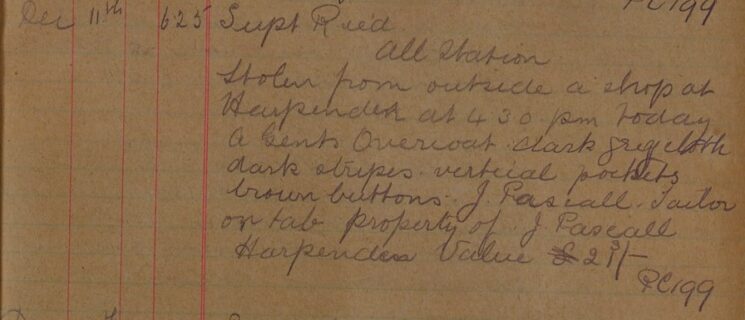 PC199
Dec 11th 6.25 Supt Rec'd
All Station
Stolen from outside a shop at
Harpenden at 4 30 pm today
A Gents Overcoat dark grey cloth
dark stripes vertical pockets
brown buttons. J. Pascall. Tailor
on tab property of J. Pascall
Harpenden Value 2 /-
PC199